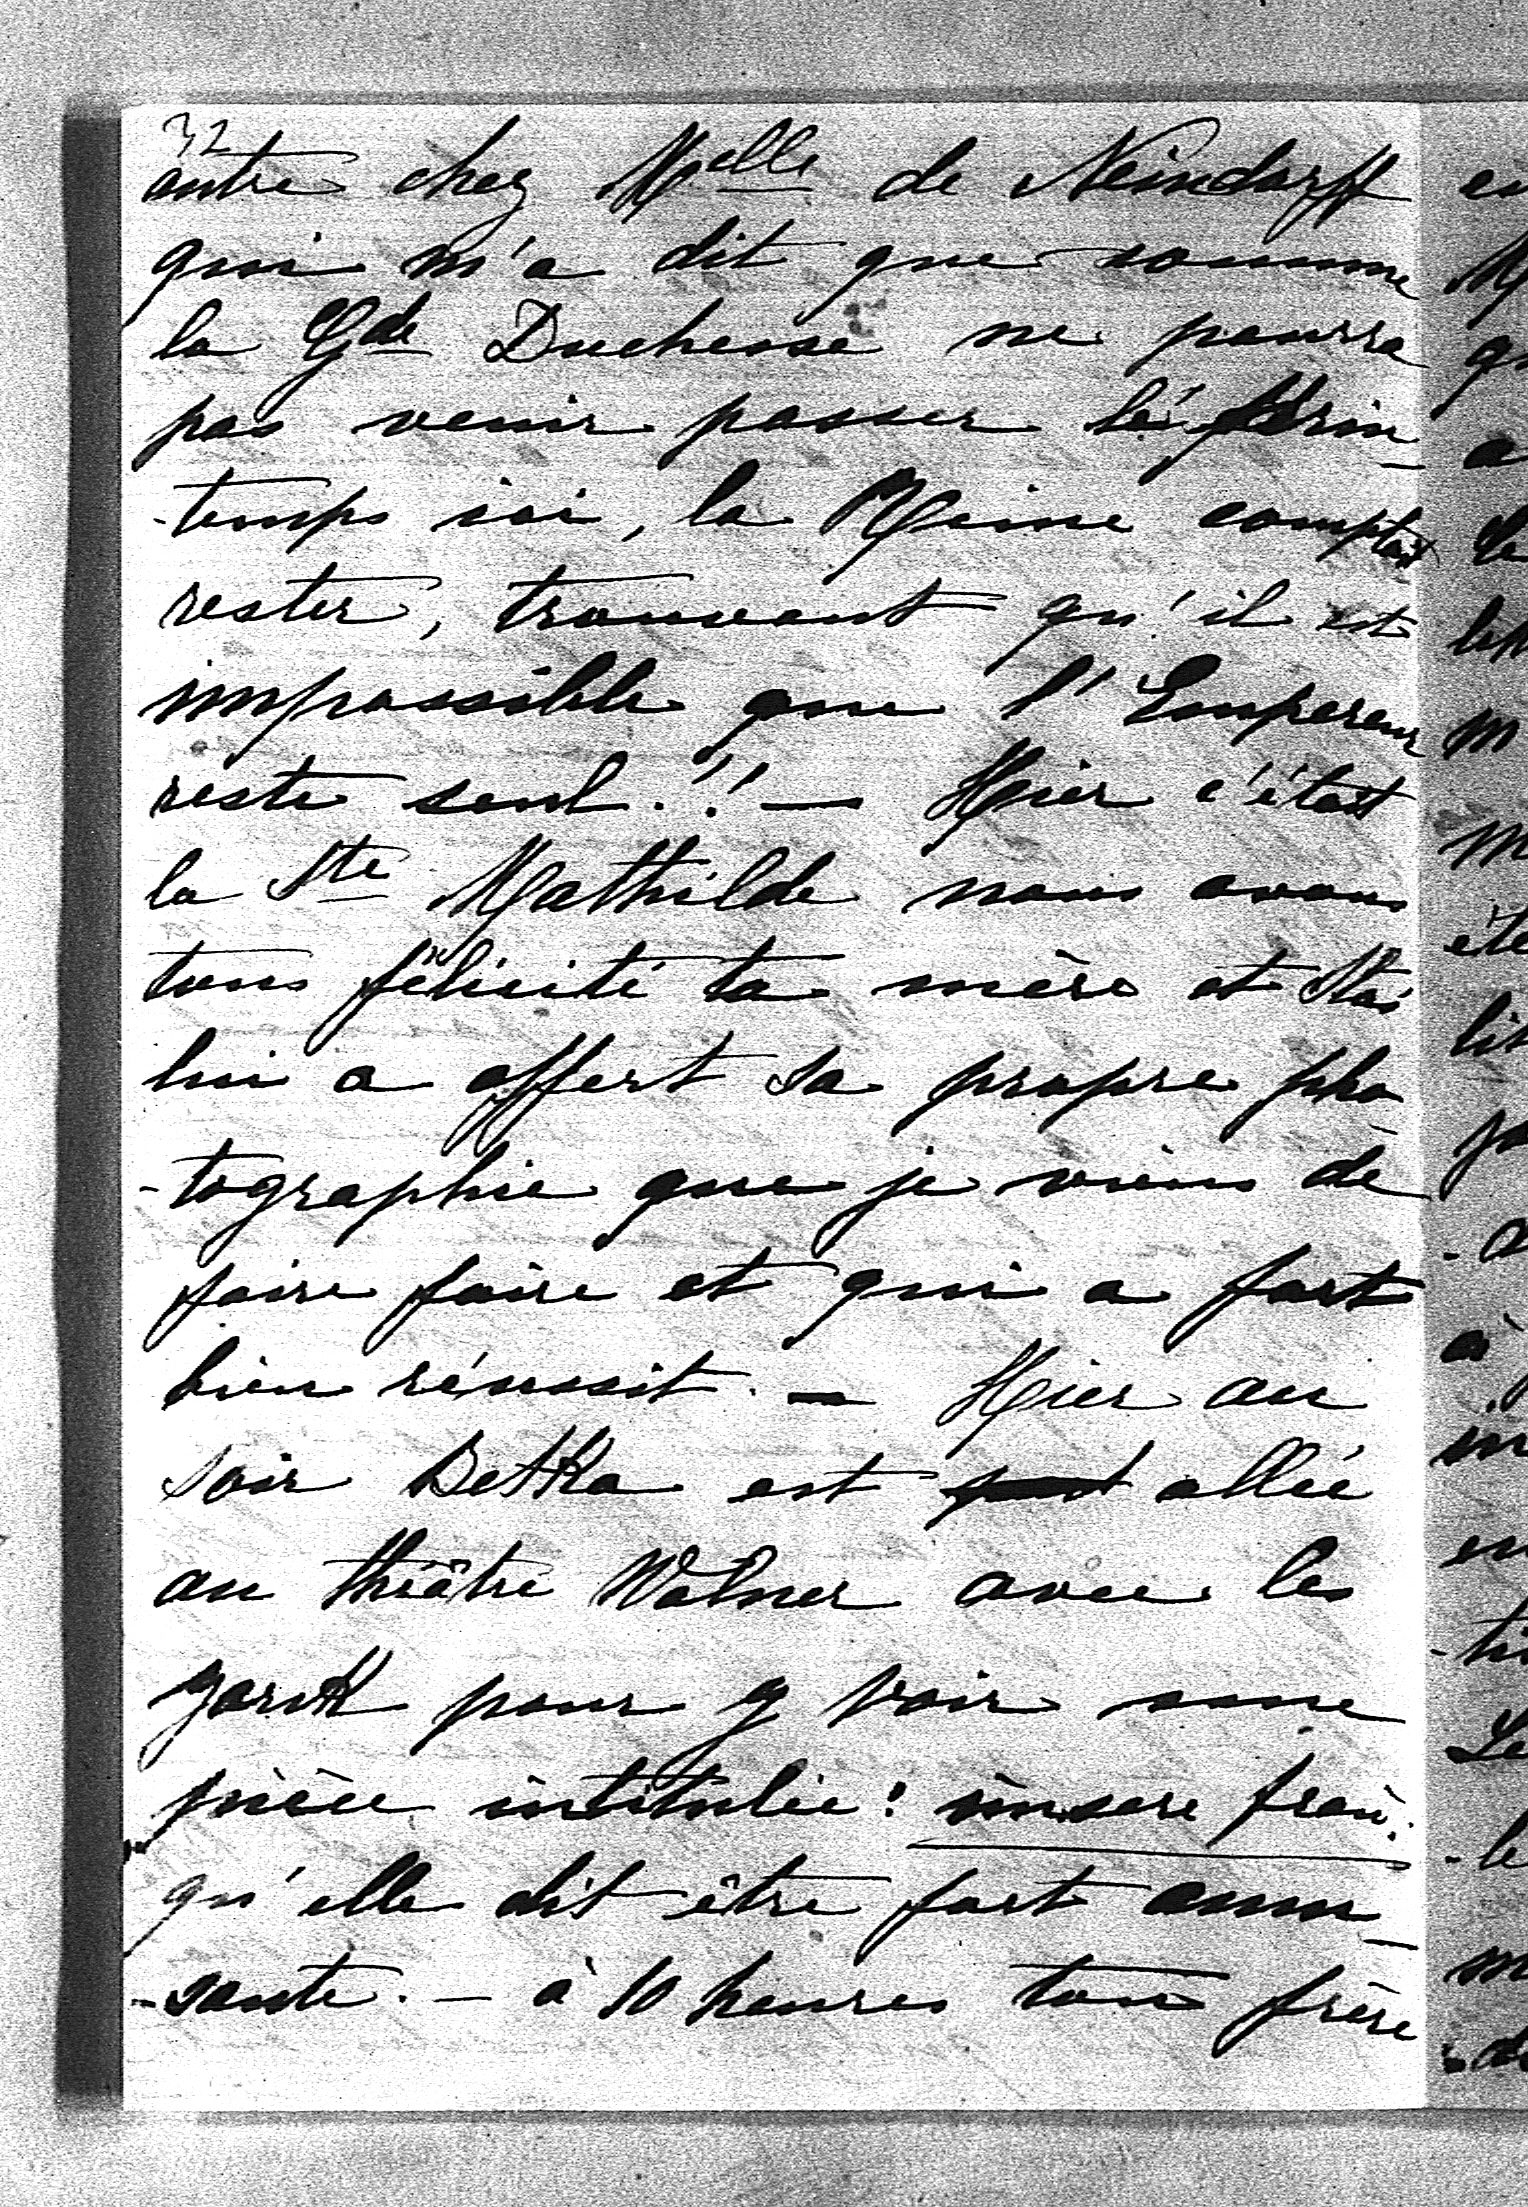 32
entre chez Melle de Neindorff
qui m'a dit que comme
la Gde Duchesse ne pourra
pas venir passer le prin_
-temps ici, la Reine comptait
rester, trouvant qu'il est
impossible que l'Empereur
reste seul.!! — Hier c'était
la Ste Mathilde nous avons
tous félicité ta mère et Stas
lui a offert sa propre pho_
-tographie que je viens de
faire faire et qui a fort
bien réussit. — Hier au
soir Betka est allée
au théâtre Walner avec les
york pour y voir une
pièce intitulée: ùnsere fraù.
qu'elle dit être fort amu_
-sante. — à 10 heures ton frère